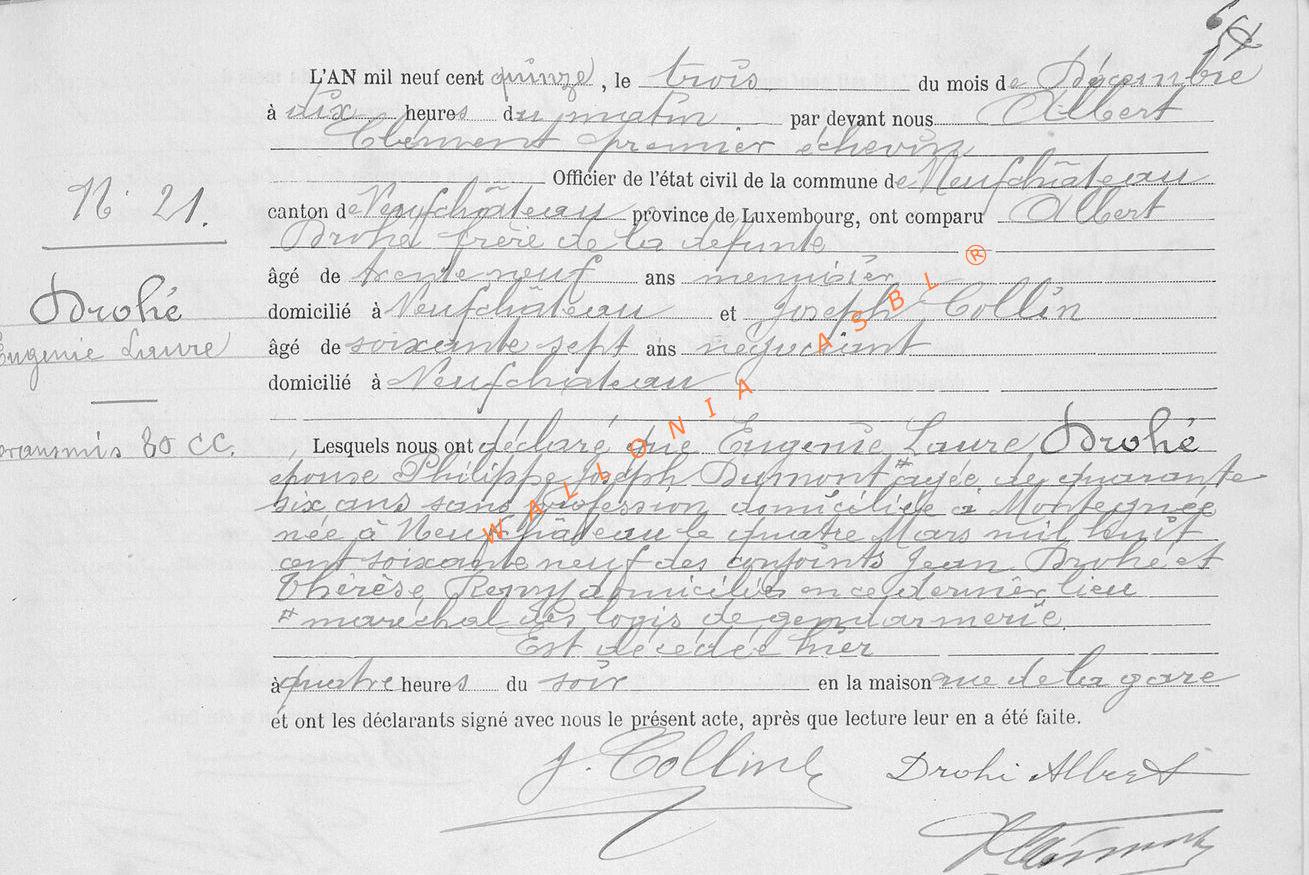 54
L'AN mil neuf cent quinze, le trois du mois de Décembre
à dix heures du matin par devant nous Albert
Clément premier échevin
Officier de l'état civil de la commune de Neufchâteau
N° 21.
canton de Neufchâteau province de Luxembourg, ont comparu Albert
Drohé frère de la défunte
âgé de trente neuf ans menuisier
Drohé
Eugenie Laure
domicilié à Neufchâteau et Joseph Collin
âgé de soixante sept ans négociant
domicilié à Neufchâteau
transmis 80 CC.
Lesquels nous ont déclaré que Eugenie Laure Drohé
épouse Philippe Joseph Dumont # agée de quarante
six ans sans profession domiciliée à Montegnée
née à Neufchâteau le quatre Mars mil huit
cent soixante neuf des conjoints Jean Drohé et
Thérèse Remy domiciliés en ce dernier lieu
# maréchal des logis de gendarmerie
Est décédée hier
à quatre heures du soir en la maison rue de la gare
et ont les déclarants signé avec nous le présent acte, après que lecture leur en a été faite.
J. Collin Drohé Albert
WALLONIA ASBL ®